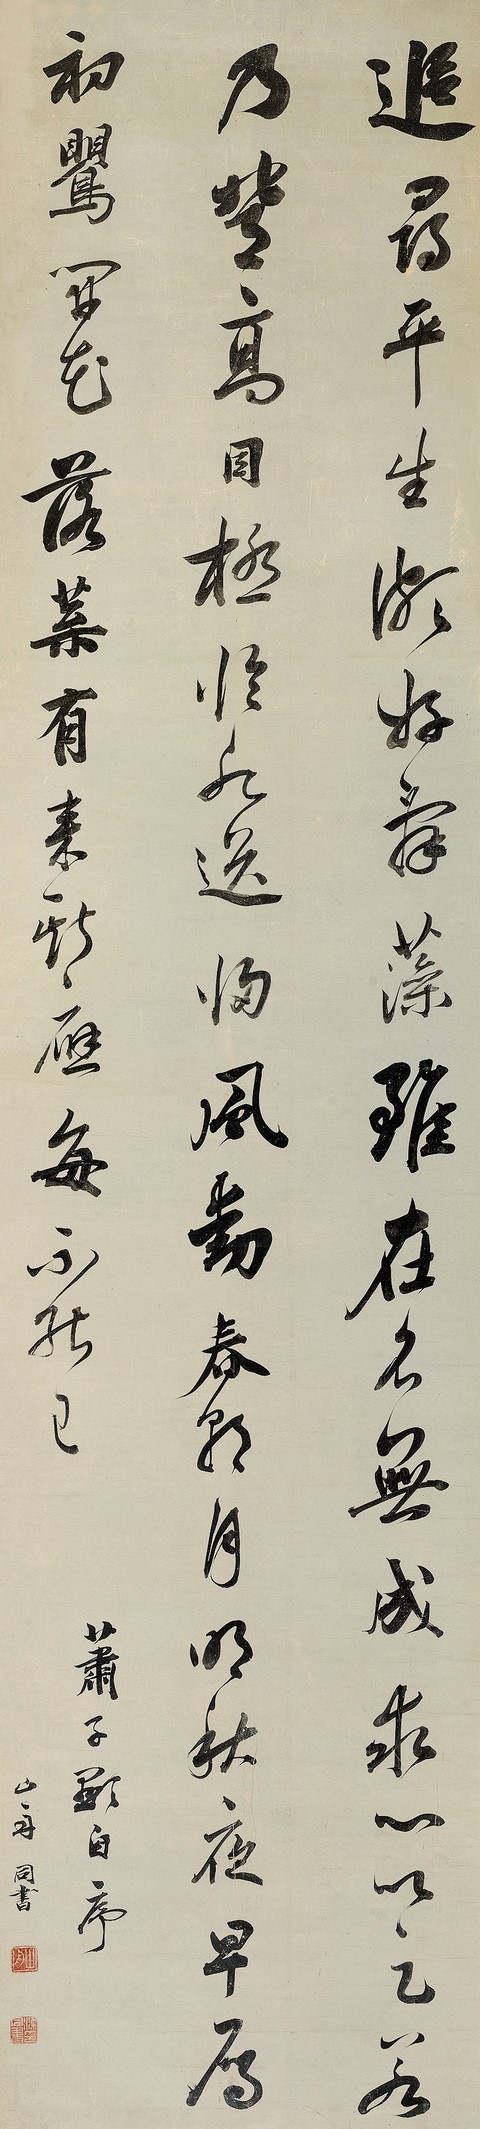 追尋平生頗好辭藻雖在名無成求心以足若
乃登高目極臨水送歸風動春朝月明秋夜早鴈
初鶯開花落葉有來斯應每不能已
蕭子顯自序
山舟同書